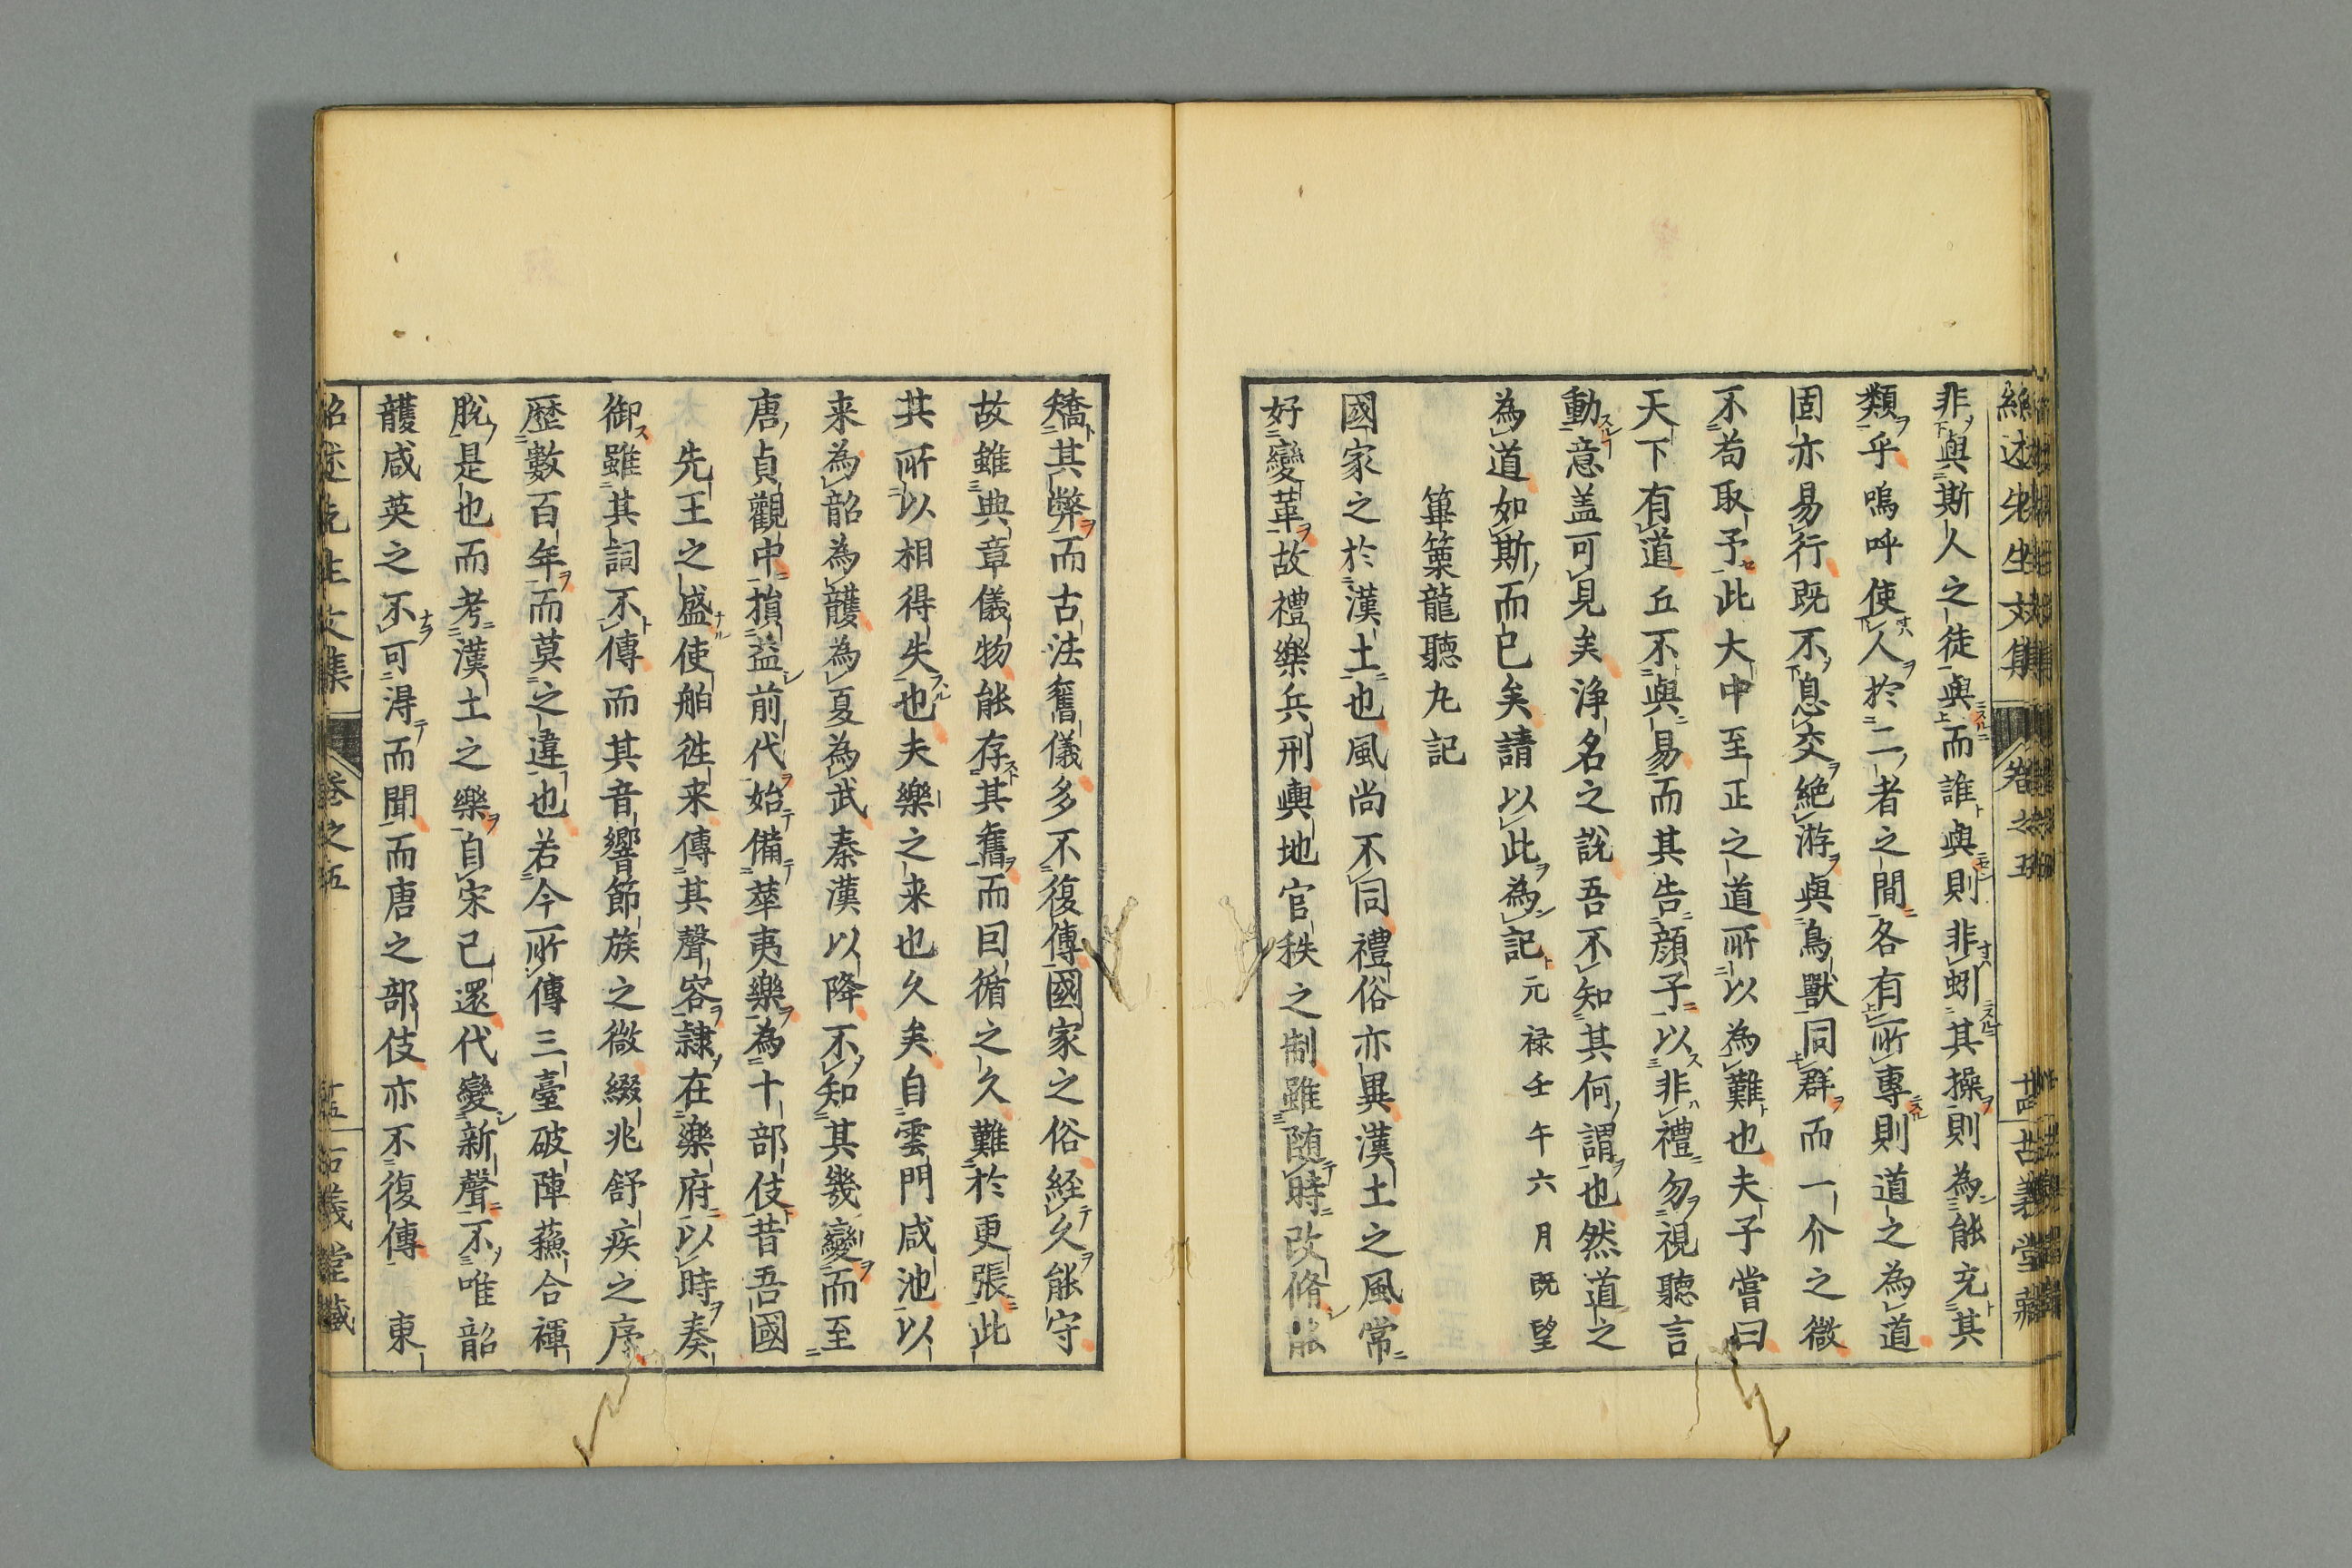 紹述先生文集 卷之五 古義堂藏
非與斯人之徒與而誰與則非蚓其操則為能充其
類乎嗚呼使人於二者之間各有所專則道之為道
固亦易行既不息交絶游與鳥獸同群而一介之微
不苟取予此大中至正之道所以為難也夫子嘗曰
天下有道丘不與易而其告顔子以非禮勿視聽言
動意盖可見矣淨名之說吾不知其何謂也然道之
為道如斯而已矣請以此為記元禄壬午六月既望
篳篥龍聽丸記
國家之於漢土也風尚不同禮俗亦異漢土之風常
好變革故禮樂兵刑輿地官秩之制雖随時改脩能
矯其弊而古法舊儀多不復傳國家之俗経久能守
故雖典章儀物能存其舊而曰循之久難於更張此
其所以相得失也夫樂之来也久矣自雲門咸池以
来為韶為頀為夏為武秦漢以降不知其幾變而至
唐貞觀中損益前代始備華夷樂為十部伎昔吾國
先王之盛使舶徃来傳其聲容隷在樂府以時奏
御雖其詞不傳而其音響節族之微綴兆舒疾之序
歷數百年而莫之違也若今所傳三臺破陣蘓合褌
脫是也而考漢土之樂自宋已還代變新聲不唯韶
頀咸英之不可得而聞而唐之部伎亦不復傳 東
紹述先生文集 卷之五 古義堂藏